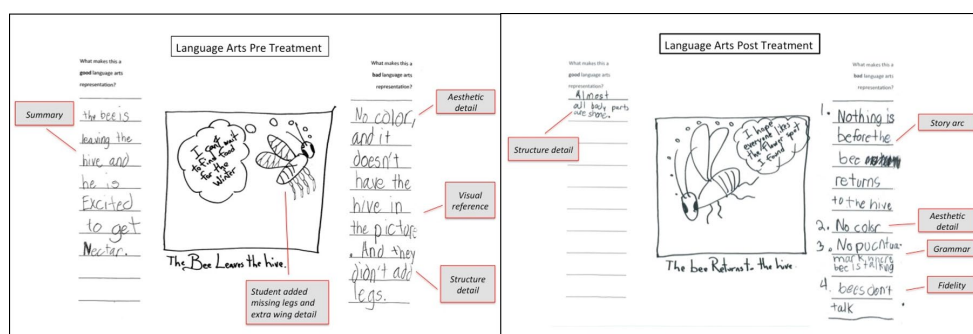 Language Arts Pre Treatment
What makes this a
good language arts
representation?
Summary
the bee is
leaving the
hive and
he is
Excited
to get
Nectar.
I can't wait
to find food
for the
winter
The Bee Leavs the hive.
Student added
missing legs and
extra wing detail
What makes this a
bad language arts
representation?
No color,
and it
doesn't
have the
hive in
the picture
. And they
didn't add
legs.
Aesthetic
detail
Visual
reference
Structure
detail
Language Arts Post Treatment
What makes this a
good language arts
representation?
Almost
all body parts
are shone.
Structure detail
I hope
everyone likes
the flower spot
I found
The bee Returns to the hive.
What makes this a
bad language arts
representation?
1. Nothing is
before the
bee
returns
to the hive
2. No color
3. No puchtua-
mark where
bee is talking
4. bees don't
talk.
Story arc
Aesthetic
detail
Grammar
Fidelity